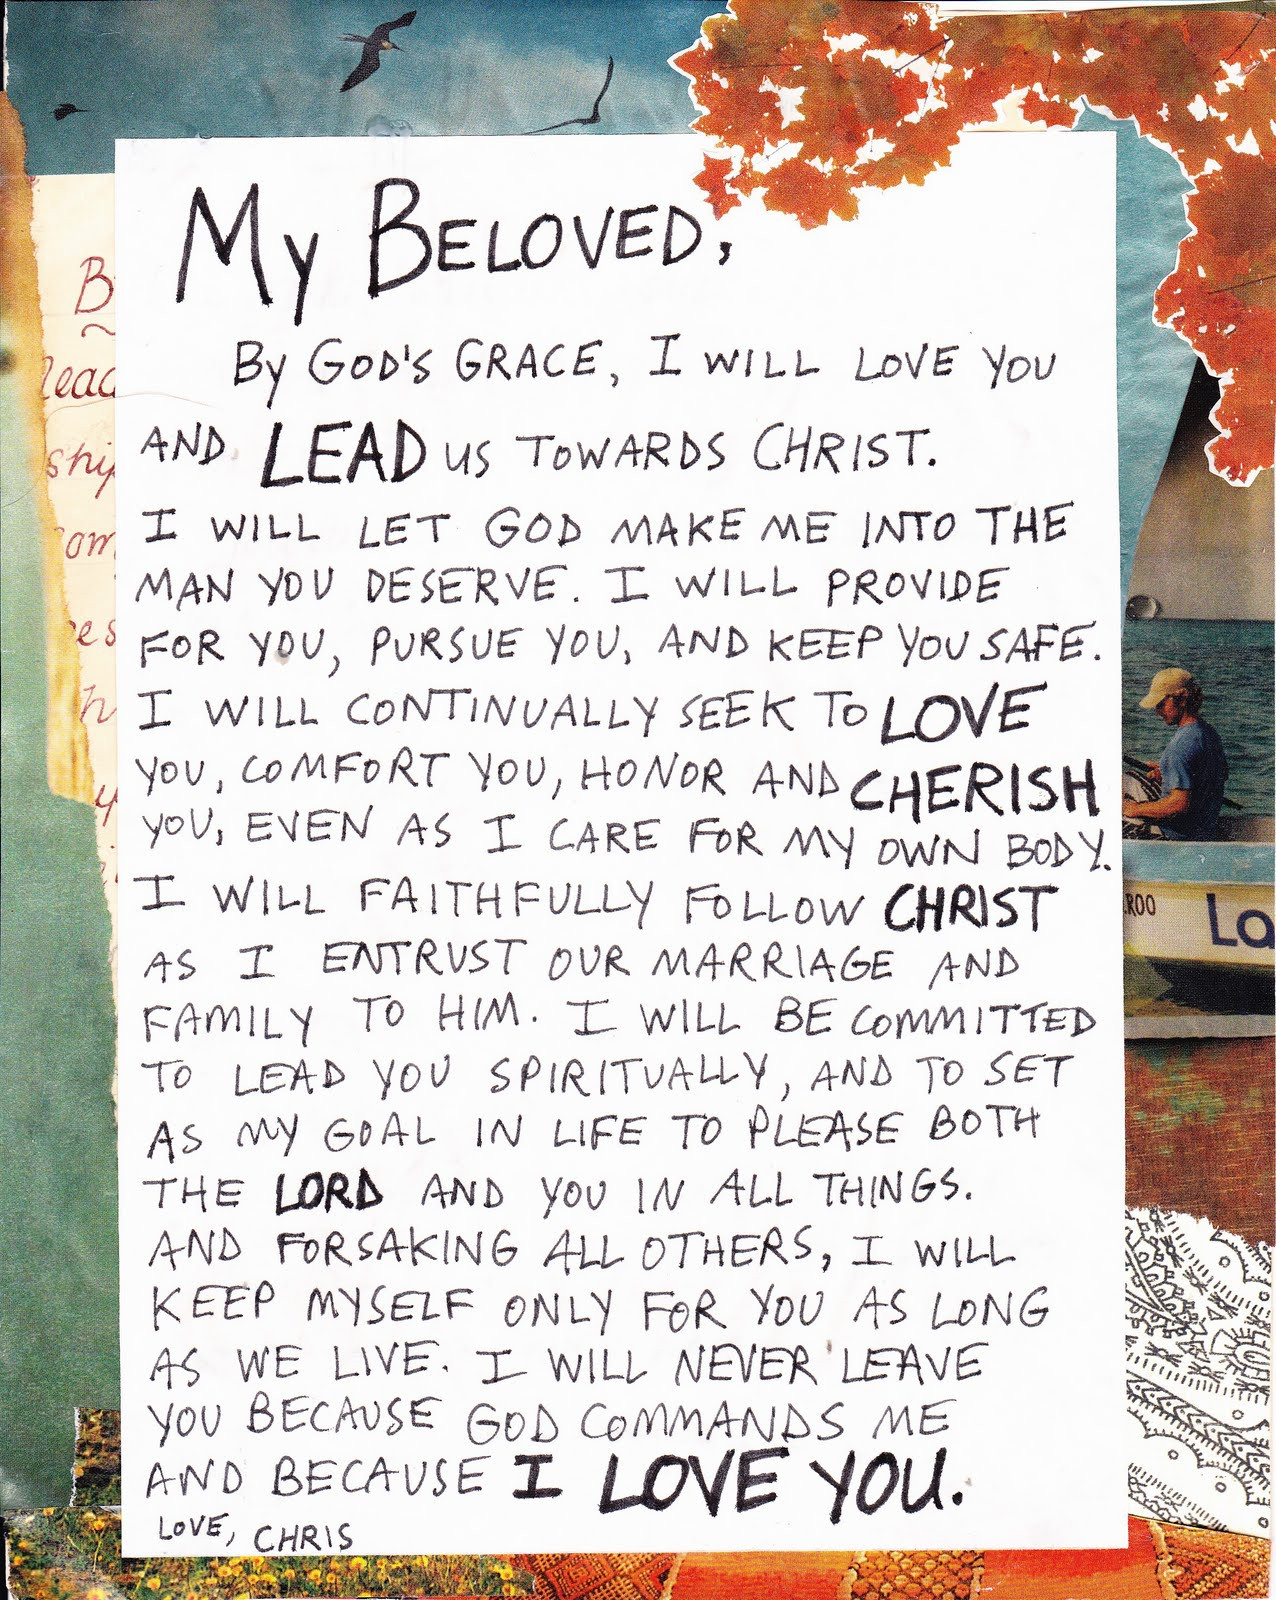 My BELOVED,
By GOD'S GRACE, I WILL LOVE YOU
AND LEAD US TOWARDS CHRIST.
I WILL LET GOD MAKE ME INTO THE
MAN YOU DESERVE. I WILL PROVIDE
FOR YOU, PURSUE YOU, AND KEEP YOU SAFE.
I WILL CONTINUALLY SEEK TO LOVE
YOU, COMFORT YOU, HONOR AND CHERISH
YOU, EVEN AS I CARE FOR MY OWN BODY.
I WILL FAITHFULLY FOLLOW CHRIST
AS I ENTRUST OUR MARRIAGE AND
FAMILY TO HIM. I WILL BE COMMITTED
TO LEAD YOU SPIRITUALLY, AND TO SET
AS MY GOAL IN LIFE TO PLEASE BOTH
THE LORD AND YOU IN ALL THINGS.
AND FORSAKING ALL OTHERS, I WILL
KEEP MYSELF ONLY FOR YOU AS LONG
AS WE LIVE. I WILL NEVER LEAVE
YOU BECAUSE GOD COMMANDS ME
AND BECAUSE I LOVE YOU.
LOVE, CHRIS
ROO
La